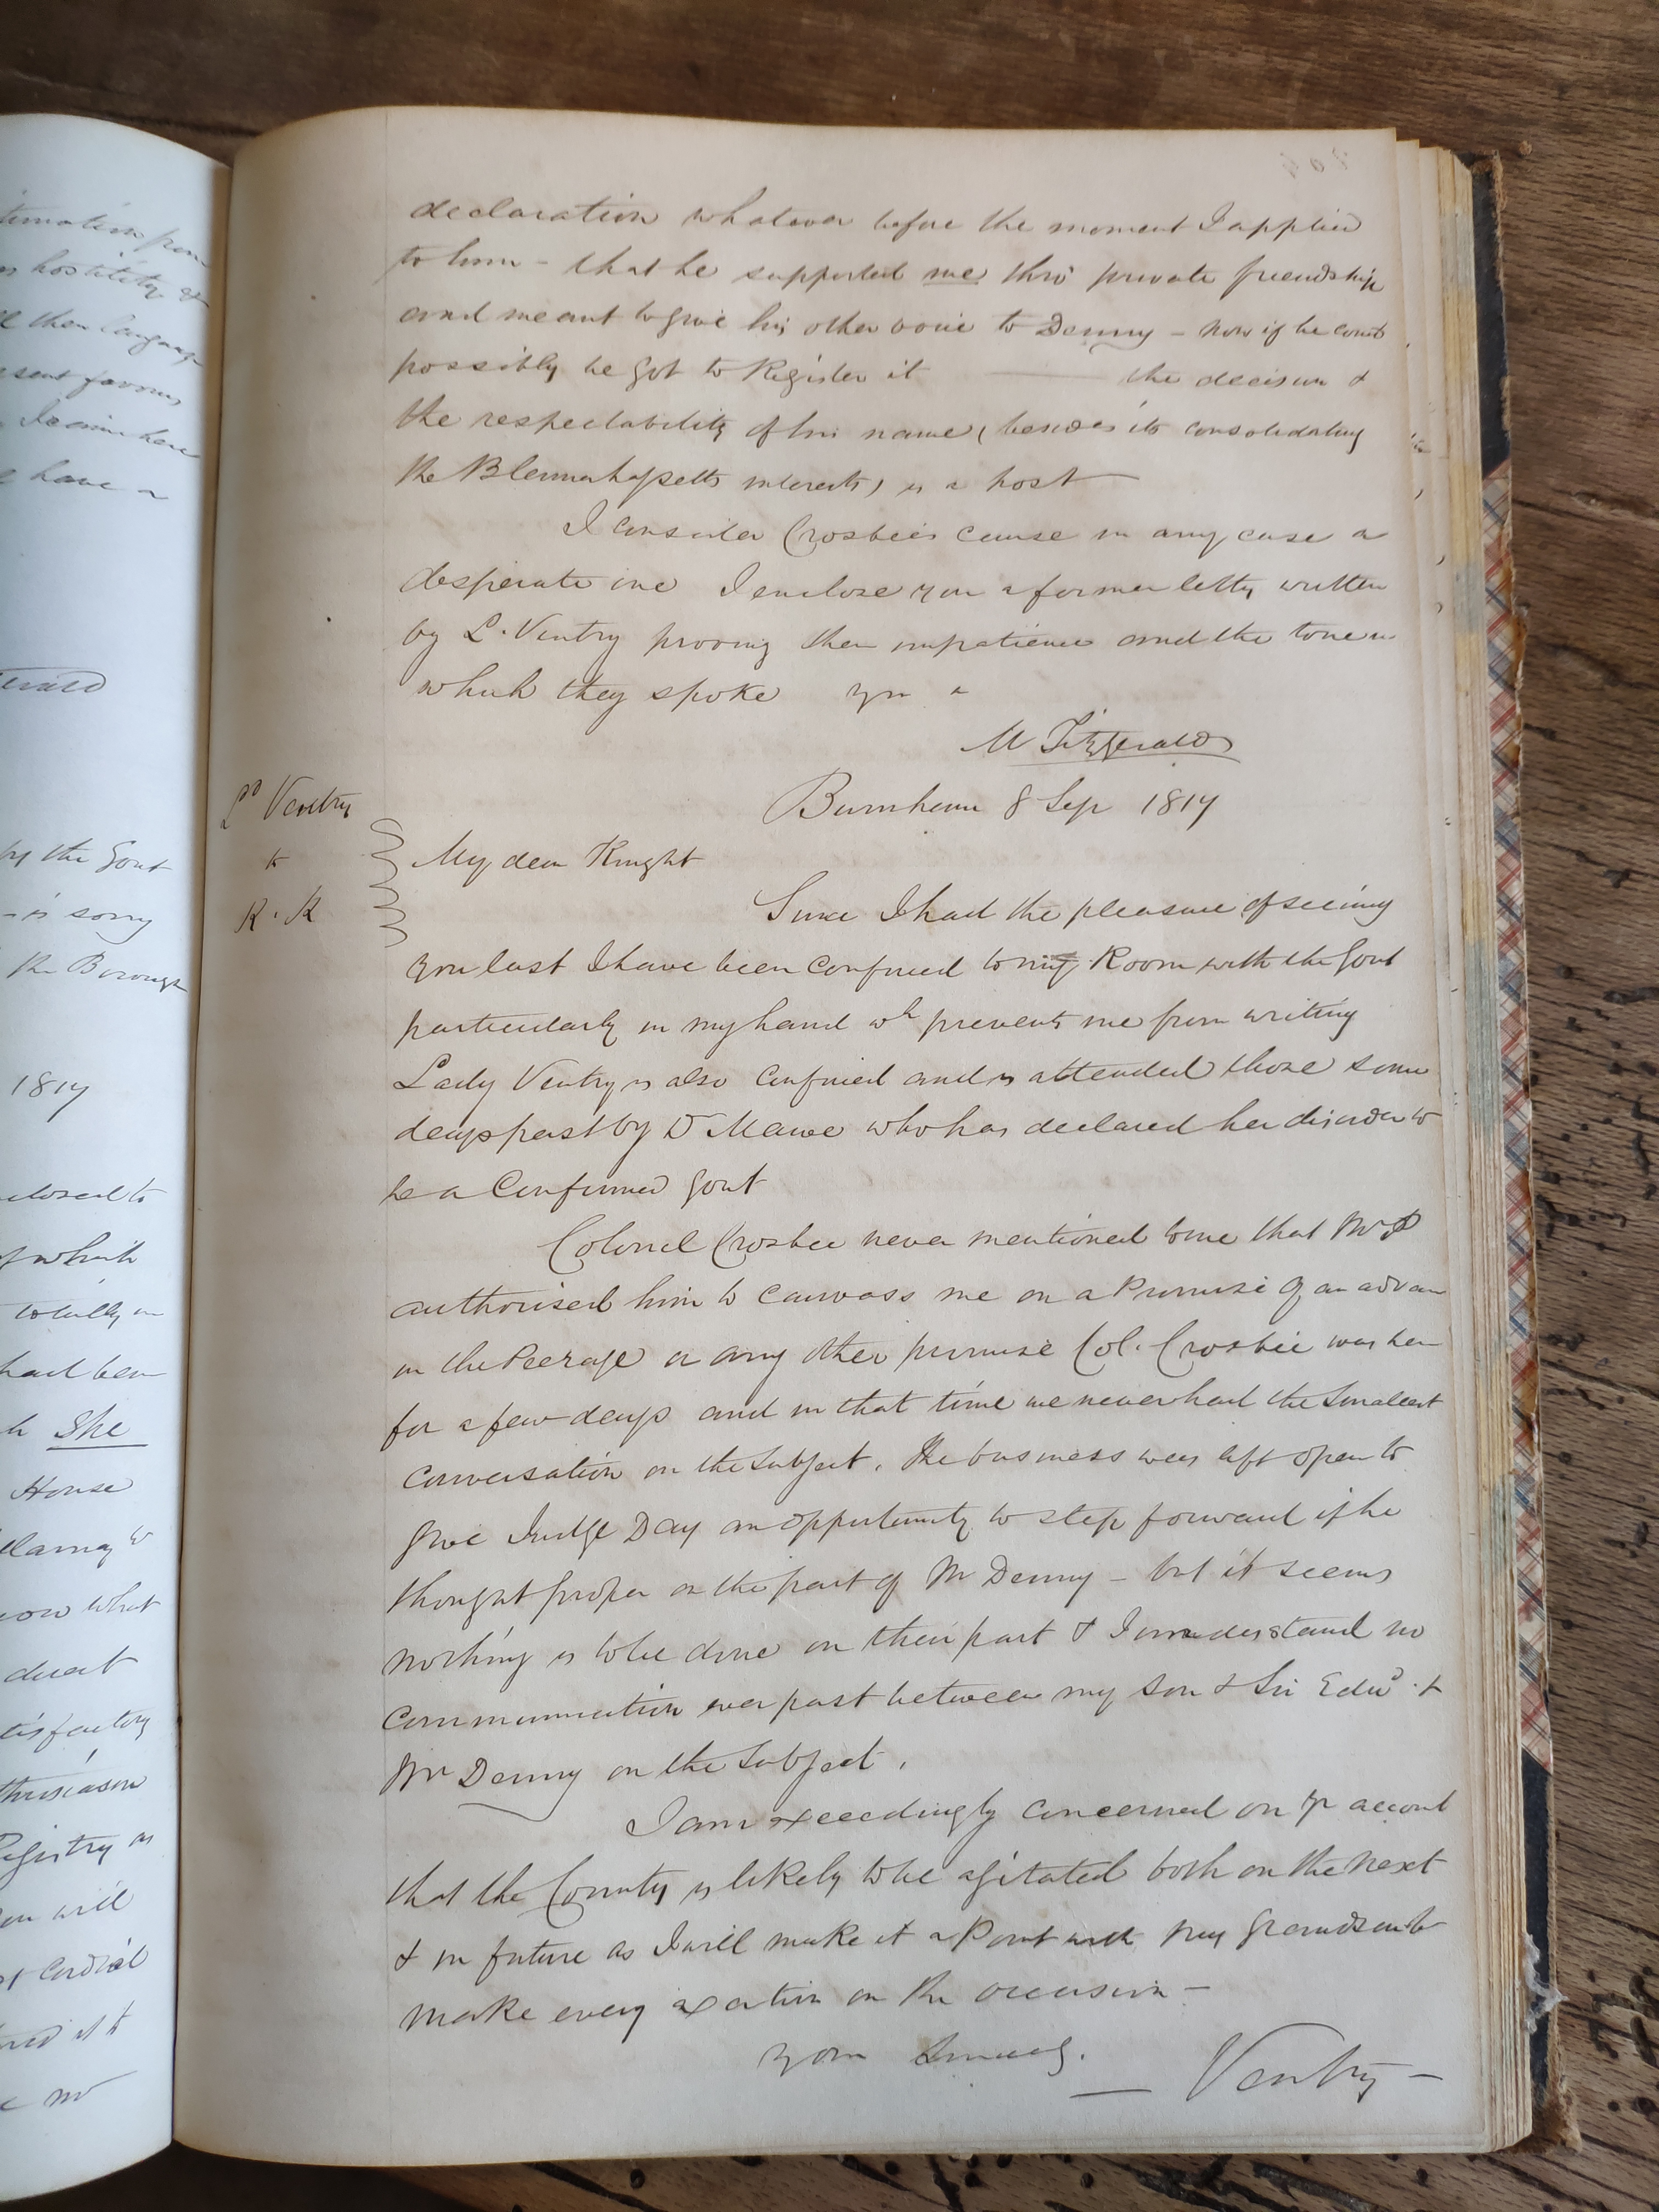 declaration whatever before the moment I applied
to him - that he supported me thro' private friendship
and meant to give his other voice to Denny - now if he could
possibly be got to Register it ——— the decision &
the respectability of his name, (besides its consolidating
the Blennerhassetts interests) is a host —
I consider Crosbie's cause in any case a
desperate one I enclose you a former letter written
by L. Ventry proving their impatience and the tone in
which they spoke you
M Fitzgerald
Ld Ventry
to
K. K
Burnham 8 Sep 1817
My dear Knight
Since I had the pleasure of seeing
you last I have been confined to my Room with the Gout
particularly in my hand wh prevents me from writing
Lady Ventry is also confined and is attended those some
days past by Dr Mawe who has declared her disorder to
be a Confirmed Gout
Colonel Crosbie never mentioned to me that Mr P
authorised him to canvass me on a Promise of an advan
in the Peerage or any other promise Col. Crosbie was her
for a few days and in that time we never had the smallest
conversation on the subject. The business was left open to
give Judge Day an opportunity to step forward if he
thought proper on the part of Mr Denny - but it seems
nothing is to be done on their part & I understand no
communication ever past between my son & Sir Edwd. &
Mr Denny on the subject.
I am exceedingly concerned on yr account
that the County is likely to be agitated both on the next
& in future as I will make it a Point with my Grandson to
make every exertion on the occasion -
your
— Ventry -
hostility &
then language
favors
have a
by the Gout
- is sorry
the Borough
1817
which
totally in
had been
She
House
what
direct
Registry as
you will
cordial